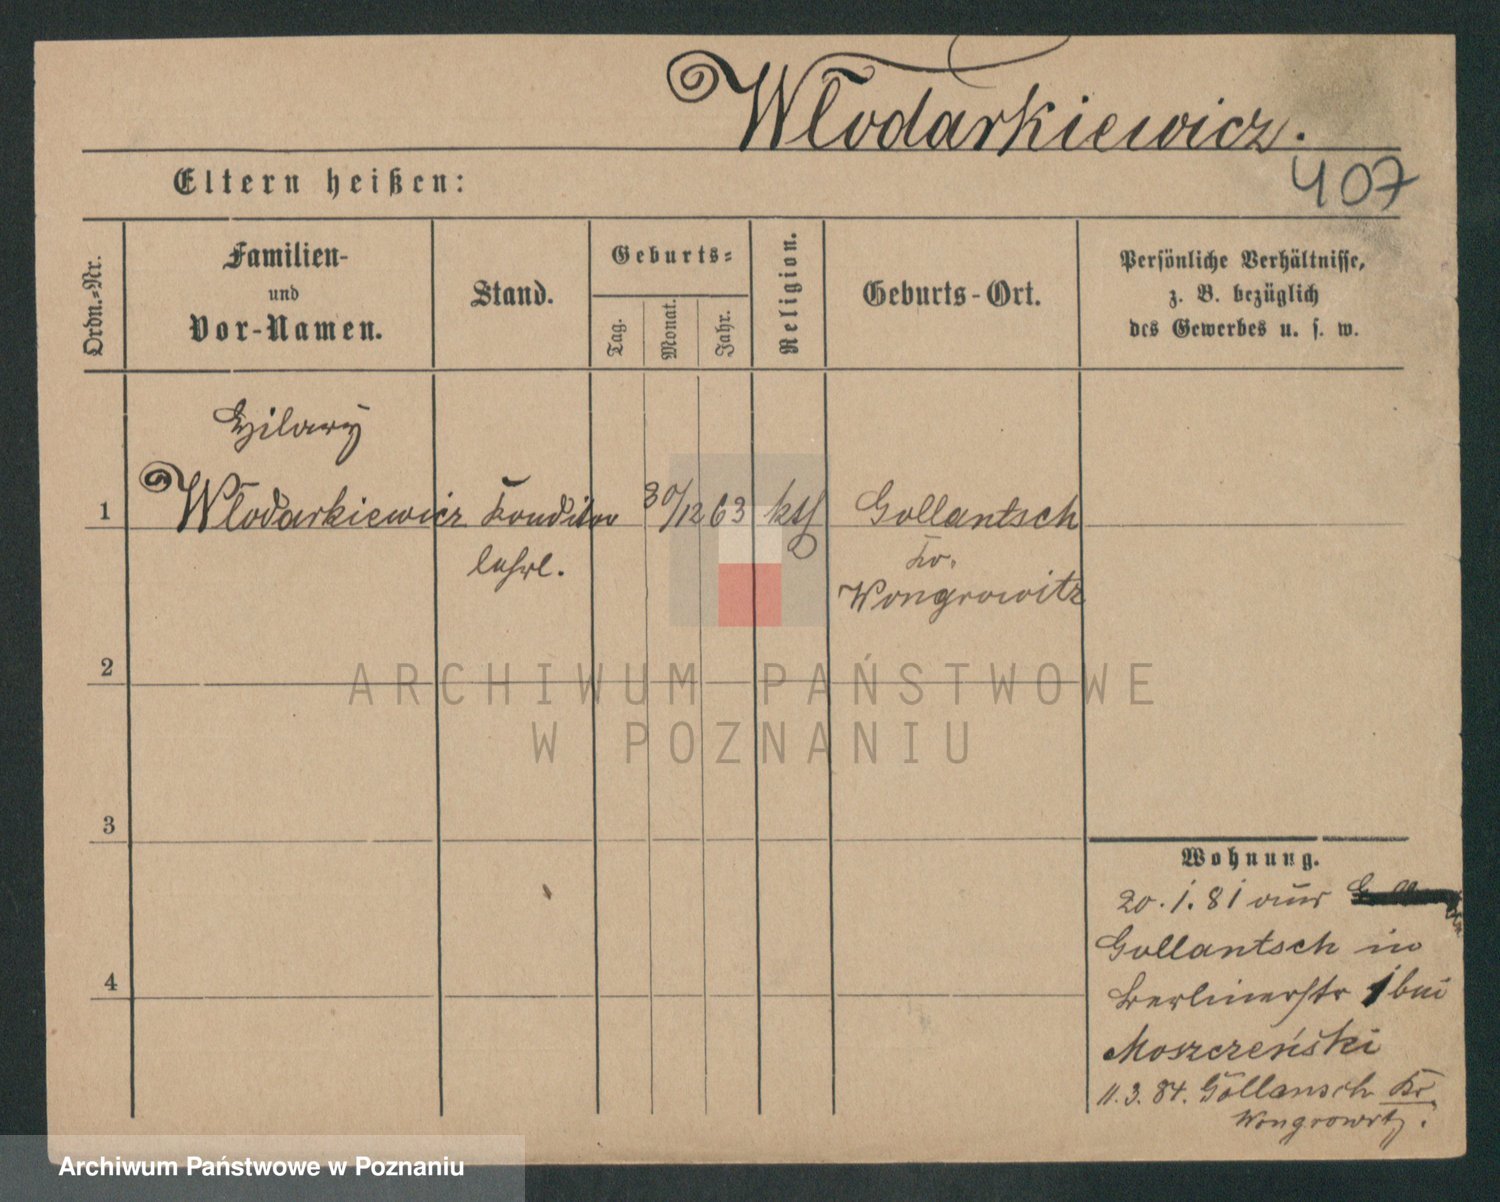 Włodarkiewicz.
407
Eltern heißen:
Ordn.-Nr.
Familien-
und
Vor-Namen.
Stand.
Geburts-
Tag.
Monat.
Jahr.
Religion.
Geburts-Ort.
Persönliche Verhältnisse,
z. B. bezüglich
des Gewerbes u. s. w.
Hilary
1 Włodarkiewicz Konditor 30/12 63 kth Gollantsch
lehrl. Kr.
Wongrowitz
2
ARCHIWUM PAŃSTWOWE
W POZNANIU
3
Wohnung.
20. 1. 81 aus
Gollantsch in
4
Berlinerstr 1 bei
Moszczeński
11. 3. 84. Gollansch Kr.
Wongrowitz.
Archiwum Państwowe w Poznaniu